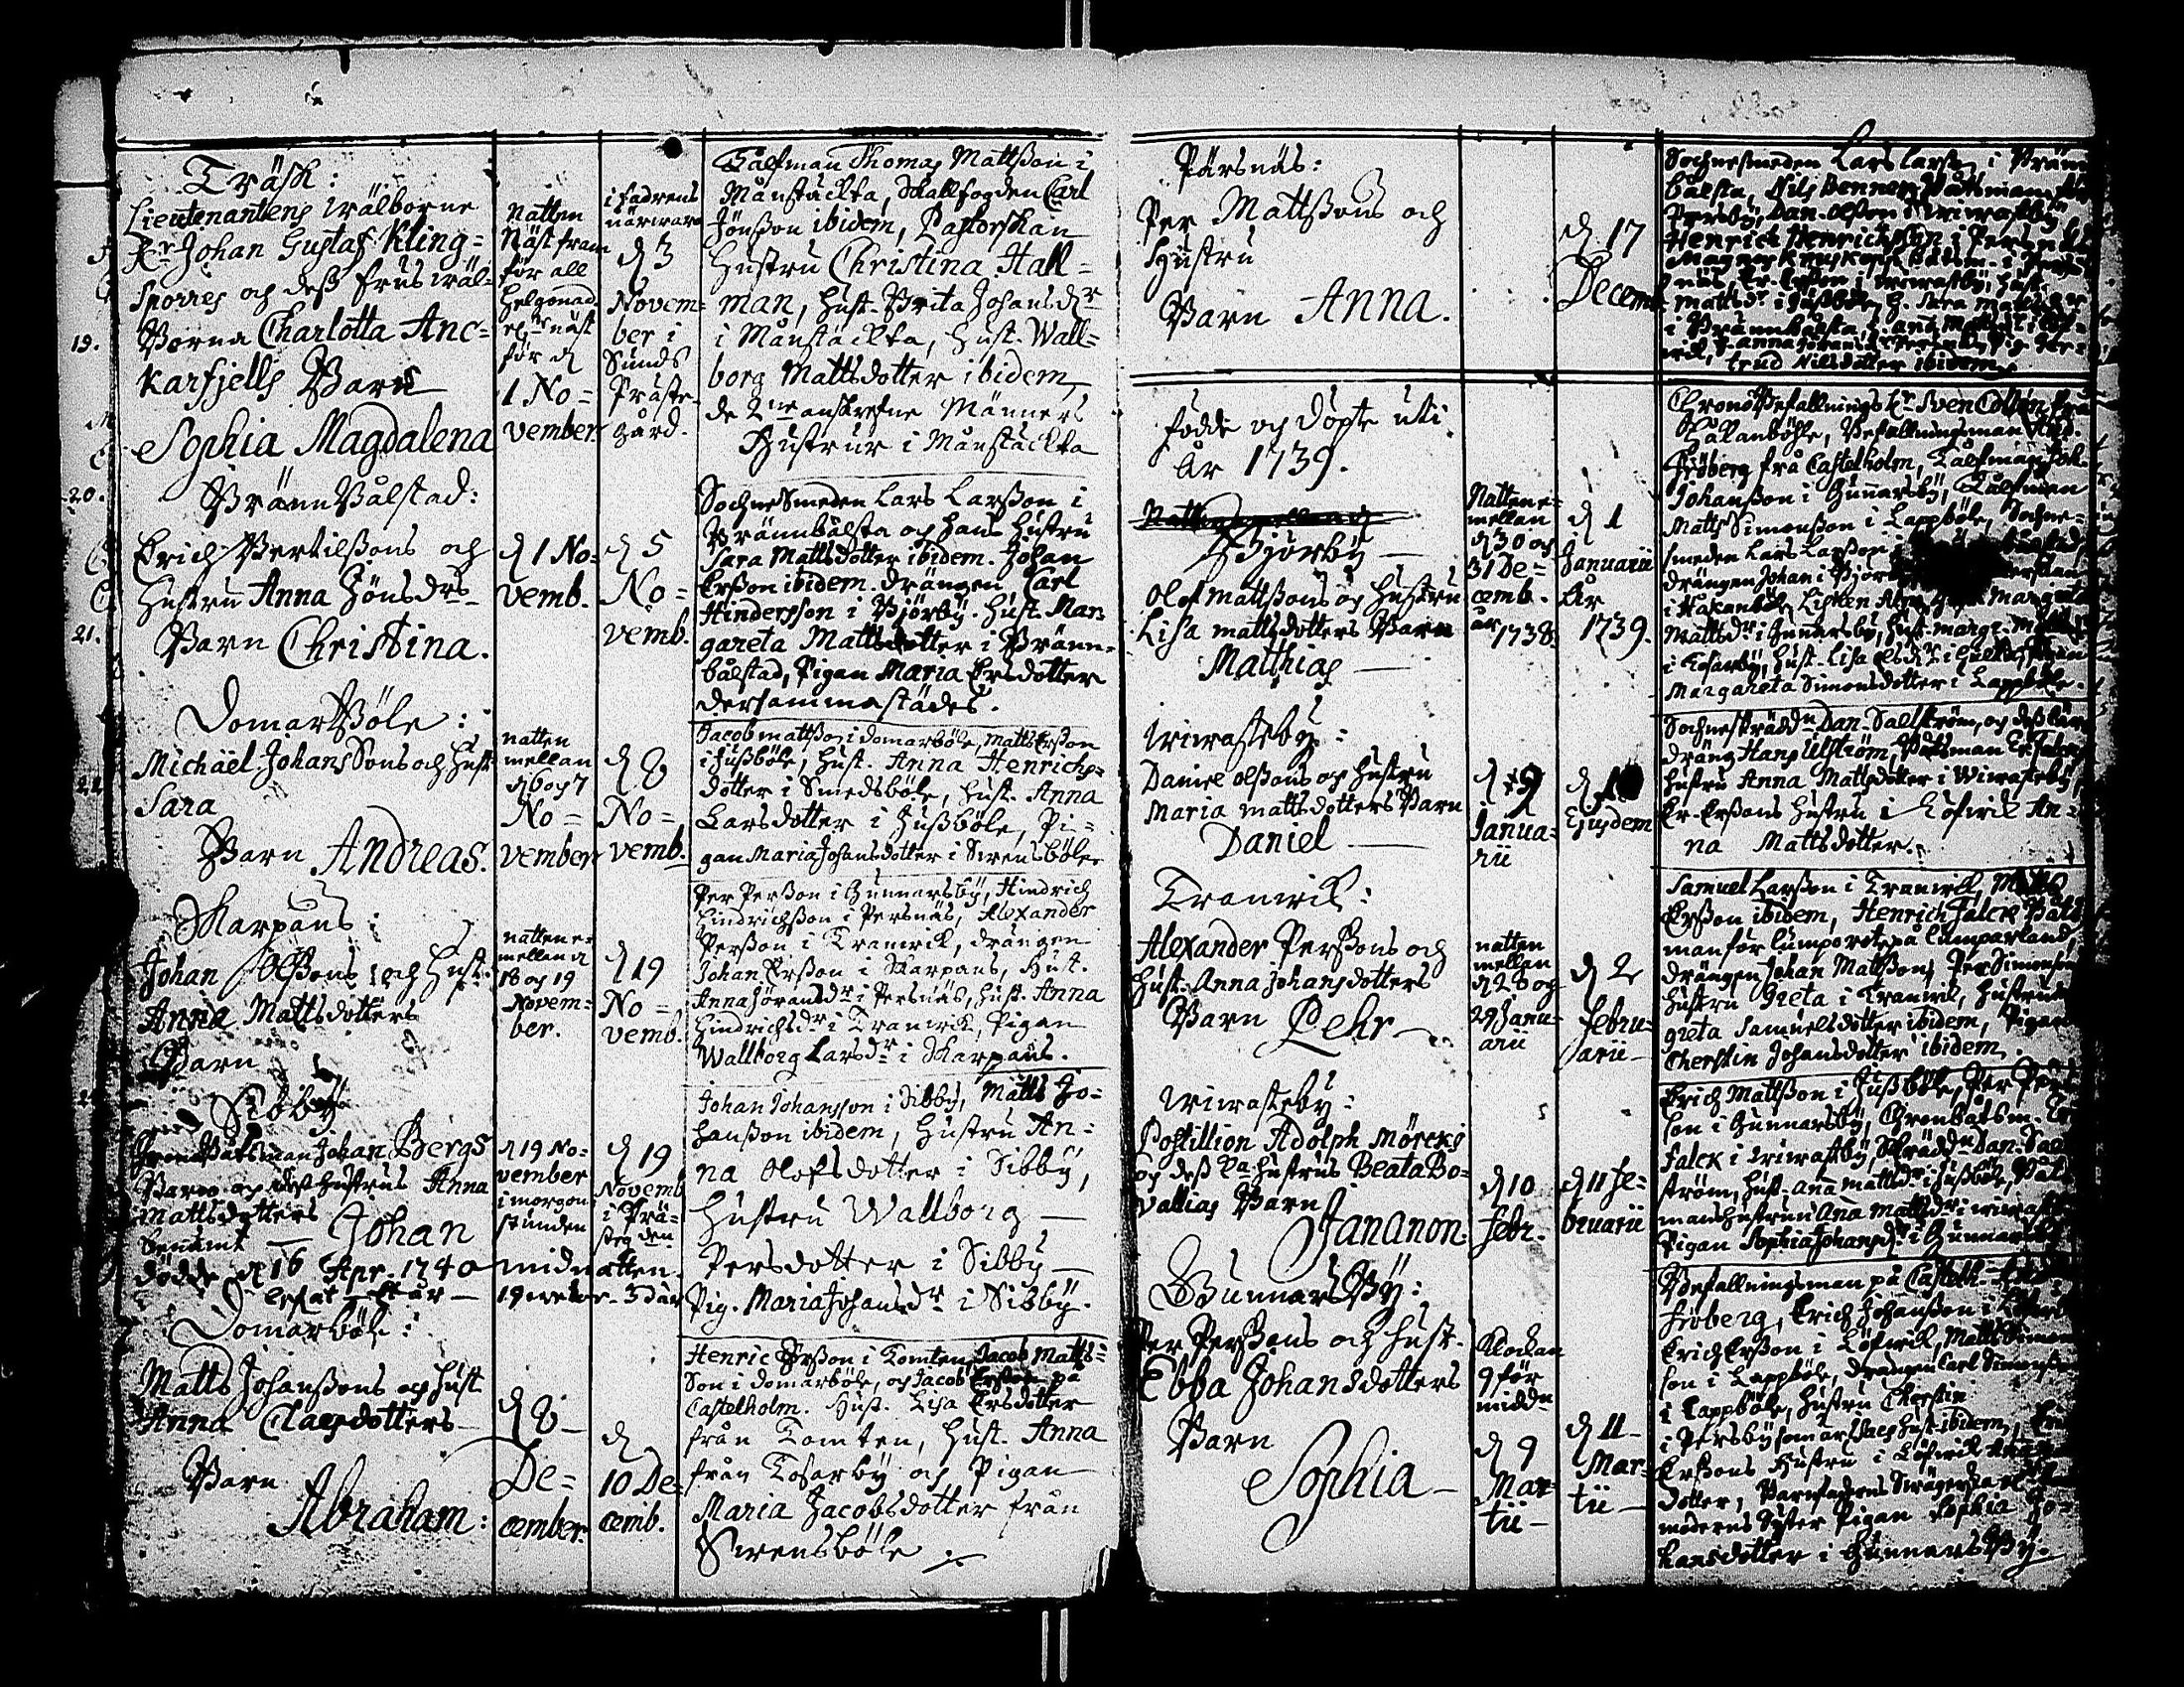 Träsk:
Lieutenantens wälborne
H:r Johan Gustaf Kling=
sporres och dess frus wäl=
Borna Charlotta Anc=
karfjells Barn
Sophia Magdalena
Natten
Näst fram
för all
Helgonad
näst
för d
1 No=
vember
i fadrens
närwaro
d 3
Novem=
ber i
Sunds
Präste=
gård.
Thomas Mattsson i
Månstäckta, Skallfogden Carl
Jönsson ibidem, Pastorskan
Hustru Christina Hall=
man, Hust. Brita Johansd:r
i Månstäckta, Hust. Wall=
borg Mattsdotter ibidem,
de 2:ne anskrefne Männers
Hustrur i Månstäckta
BrännBålstad:
Erich Bertilssons och
Hustru Anna Jönsd:rs
Barn Christina.
d 1 No=
vemb.
d 5
No=
vemb.
Sochnesmeden Lars Larsson i
Brännbålsta och hans Hustru
Sara Mattsdotter ibidem. Johan
Ersson ibidem. drängen Carl
Hindersson i Björby. Hust. Mar=
gareta Mattsdotter i Bränn=
bålstad, Pigan Maria Ersdotter
dersammastädes.
DomarBöle:
Michäel Johans Sons och Hust
Sara
Barn Andreas.
natten
mellan
d 6 och 7
No=
vember
d 8
No=
vemb.
Jacob Mattsson i domarböle, Matts Ersson
i Hussböle, Hust. Anna Henrichs=
dotter i Smedsböle, Hust. Anna
Larsdotter i Hussböle, Pi=
gan Maria Johansdotter i Swensböle
Skarpans:
Johan Olssons och Hust.
Anna Mattsdotters
Barn
natten e=
mellan d
18 och 19
Novem=
ber.
d 19
No=
vemb.
Per Persson i Gunnarsby, Hindrich
Hindrichsson i Persnäs, Alexander
Persson i Tranwik, drängen
Johan Ersson i Skarpans, Hust.
Anna Göransd:r i Persnäs, Hust. Anna
Hindrichsd:r i Tranwik, Pigan
Wallborg Larsd:r i Skarpans.
Sibby
Båtsman Johan Bergs
Barn och dess hustrus Anna
Mattsdotters
benämt — Johan
dödde d 16 Apr. 1740 midnatten.
19 wekor - 3 dar
d 19 No=
vember
i morgon
stunden
d 19
Novemb
i Prä=
steg:den
Johan Johansson i Sibby, Matts Jo=
hansson ibidem, Hustru An=
na Olofsdotter i Sibby,
Hustru Wallborg —
Persdotter i Sibby —
Pig. Maria Johansd:r i Sibby.
Domarböle:
Matts Johanssons och Hust
Anna Claesdotters
Barn
Abraham:
d 8
De=
cember.
d
10 De=
cemb.
Henric Ersson i Tomten, Jacob Matts=
Son i domarböle, och Jacob Ersson på
Castelholm. Hust. Lisa Ersdotter
från Tomten, Hust. Anna
från Tosarby och Pigan
Maria Jacobsdotter från
Swensböle
19.
20.
21.
Pärsnäs:
Per Mattssons och
Hustru
Barn Anna.
d 17
Decemb
Sochnesmeden Lars Larsson i Bränn
bålsta, Nils Benner Båtsman
Persby, Dan. Olsson i wiwastby
Henrich Henrichsson i Persnäs
trud Nilsdotter ibidem
födde och döpte uti
År 1739.
Björby —
Olof Mattssons och Hustru
Lisa Mattsdotters Barn
Matthias —
Natten e=
mellan
d 30 och
31 De=
cemb.
år
1738
d 1
Januarii
År
1739.
Befallningsman
Fröberg frå Castelholm,
Johansson i Gunnarsby,
Matts Simonsson i Lappböle, Sochne=
smeden Lars Larsson i
drängen Johan i Björby
Mattsd:r i Gunnarsby, Hust.
i Tosarby, Hust. Lisa
Margareta Simonsdotter i Lappböle.
wiwasteby:
Daniel Olssons och Hustru
Maria Mattsdotters Barn
Daniel —
d 9
Janua=
rii
d
Ejusdem
Dan. Sallström, och dess lär
dräng Hans Ulström, Båtsman
Hustru Anna Mattsdotter i Wiwasteby,
Er. Erssons Hustru i Löfwik An=
na Mattsdotter.
Tranwik:
Alexander Perssons och
Hust. Anna Johansdotters
Barn Pehr —
natten
mellan
d 28 och
29 Janu=
arii
d 2
Febru=
arii —
Samuel Larsson i Tranwik, Matts
Ersson ibidem, Henrich Falck Båts
man för Lumpo rote på Lumparland,
drängen Johan Mattsson, Per Simonssons
Hustru Greta i Tranwik, Hustru
Greta Samuelsdotter ibidem, Pigan
Cherstin Johansdotter ibidem
wiwasteby:
Postillion Adolph Mörcks
och dess K:a Hustrus Beata Bo=
vallias Barn
Jananon.
d 10
Febr.
d 11 Fe=
bruarii
Erich Mattsson i Hussböle, Per Pers
son i Gunnarsby, Cronobåtsm.
Falck i wiwastby, Skrädd:n Dan. Sal
ström, Hust. Anna Mattsd:r i Hussböle, Båts
mans hustrun Anna Mattsd:r i wiwasteby
Pigan Sophia Johansd:r i Gunnarsby
GunnarsBy:
Per Perssons och Hust.
Ebba Johansdotters
Barn
Sophia —
Klockan
9 för
midd:n
d 9
Mar=
tii —
d 11
Mar=
tii —
Befallningsman på Casteh.
Fröberg, Erich Johansson i
Erich Ersson i Löfwik, Matts Simons
son i Lappböle, drängen Carl Simonsson
i Lappböle, Hustru Cherstin
i Persby
Erssons Hustru i Löfwik
dotter, Barnfadrens Swägerska
modrens Syster Pigan Sophia Jo=
hansdotter i GunnarsBy.